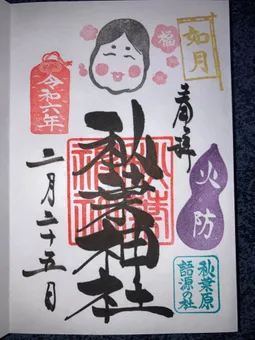 如月
福
奉拝
火防
秋葉原
語源の社
秋葉神社
令和六年
二月二十五日